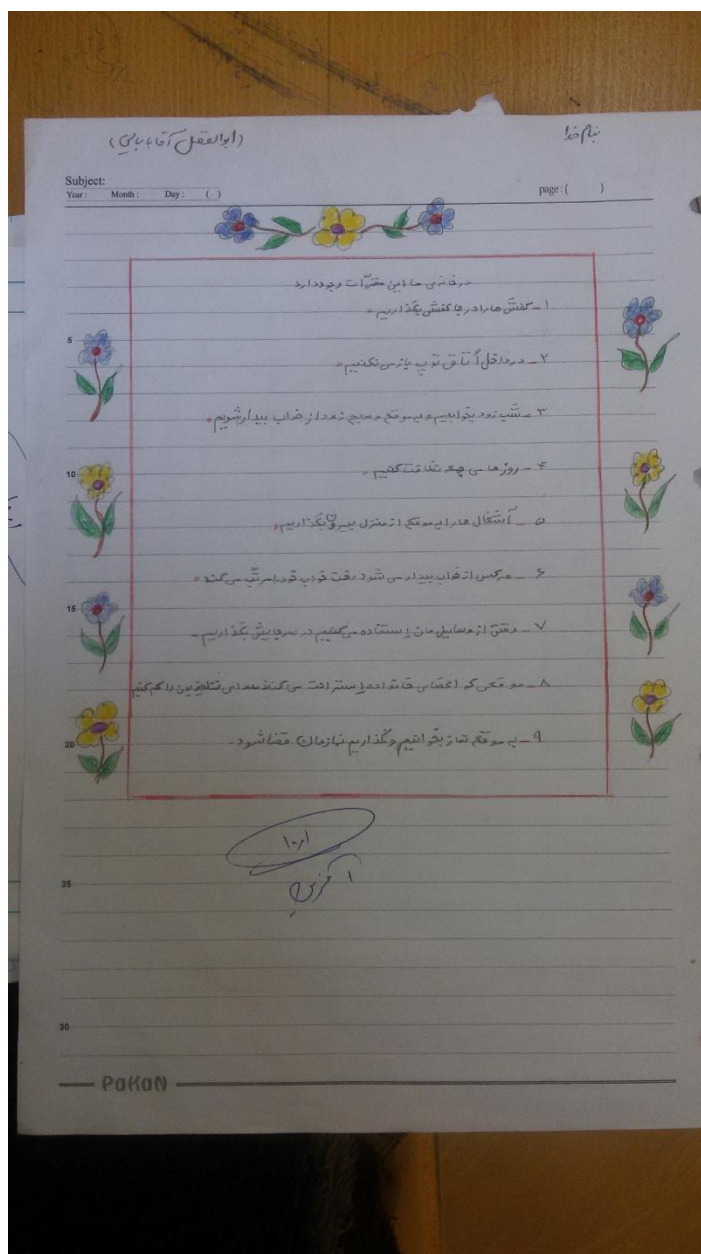 بنام خدا
(ابوالفضل آقابابایی)
Subject:
Year: Month: Day: ( )
page: ( )
در خانه‌ی ما این مقررّات وجود دارد
۱ـ کفش ها را در جا کفشی بگذاریم.
۲ـ در داخل اُتاق توپ بازی نکنیم.
۳ـ شب زود بخوابیم و به موقع و صبح زود از خواب بیدار شویم.
۴ـ روزهای جمعه نظافت کنیم.
۵ـ آشغال ها را به موقع از منزل بیرون بگذاریم.
۶ـ هرکس از خواب بیدار می شود رخت خواب خود را مرتّب می کند.
۷ـ وقتی از وسایل مان استفاده می کنیم در سرجایش بگذاریم.
۸ـ موقعی که اعضای خانواده استراحت می کنند صدای تلویزیون را کم کنیم
۹ـ به موقع نماز بخوانیم و نگذاریم نمازمان قضا شود.
آفرین
5
10
15
20
25
30
PaKaN